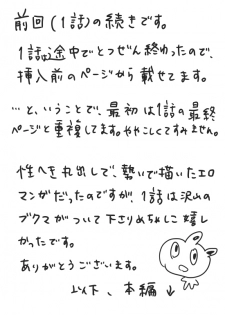 前回(1話)の続きです。
1話が途中でとつぜん終わったので、
挿入前のページから載せてます。
…と、いうことで、最初は1話の最終
ページと重複してます。ややこしくてすみません。
性へきを丸出しで、勢いで描いたエロ
マンがだったのですが、1話は沢山の
ブクマがついて下さりめちゃしこ嬉し
かったです。
ありがとうございます。
以下、本編↓